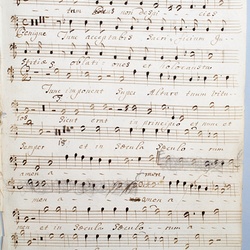 tam Deus non des cies
Benigne Tunc acceptabis Sacri ficium Ju
stitiæ oblati ones et holocausta
Tunc imponent Super Altare tuum Vitu
los Sicut erat in principio et nunc et
Semper et in Sæcula Sæculo rum
amen a men a
men a amen a
et in Sæcula Sæculo rum a
amen a men